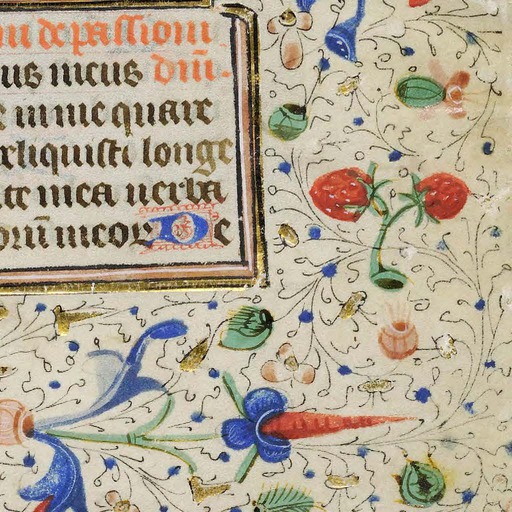 de passioni
us meus dm̄
in me quare
reliquisti longe
te mea uerba
orū meorr D e